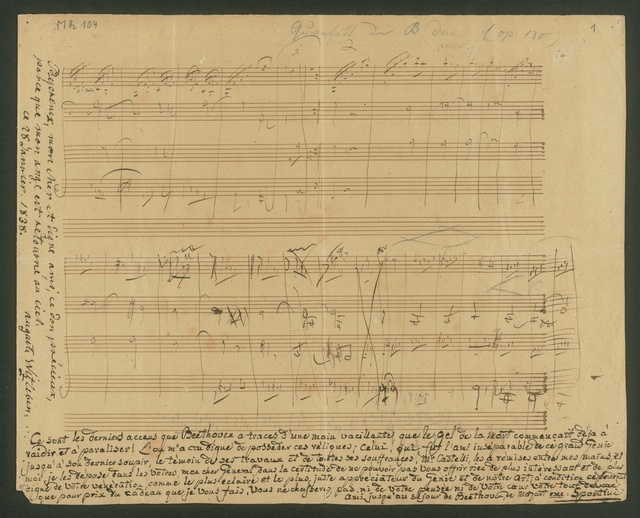 Mh 104
Quartett in B dur (op: 130
1
Reprenez, mon cher et digne ami, ce don précieux,
parce que mon ange est retourné au ciel.
ce 28 Janvier 1838.
auguste Witzleben.
Ce sont les derniers accens que Beethoven a tracés d'une main vacillante, que le gel de la mort commençait déjà à
raidir et à paraliser! L'on m'a cru digne de posséder ces réliques; Celui, qui fut l'ami inséparable de ce grand Génie
jusqu'à son dernier soupir, le témoin de ses travaux et de toutes ses souffrances, Mr Castelli les a remises entre mes mains, et
moi je les dépose dans les votres, mon cher Général dans la certitude de ne pouvoir pas vous offrir rien de plus interessant et de plus
digne de votre vénération comme le plus éclairé et le plus juste appréciateur du Génie et de notre Art, à condition
que pour prix du cadeau que je vous fais, Vous ne chasserez pas ni de votre pensée ni de votre cœur votre tout dévoué
ami jusqu'au séjour de Beethoven, de Mozart Spontini